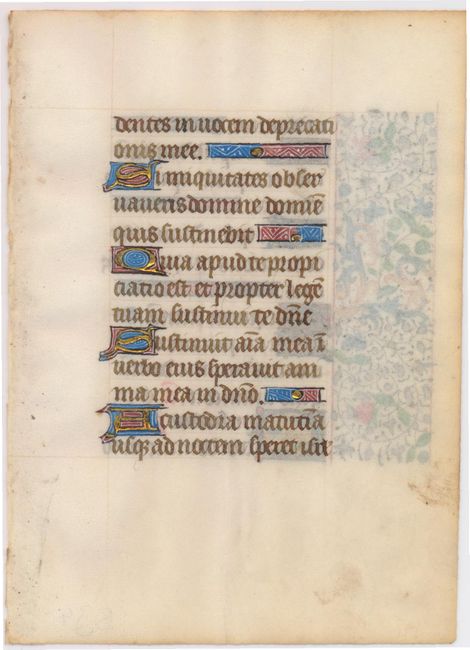 dentes in vocem deprecati
onis mee.
Si iniquitates obser
vaveris domine domĩe
quis sustinebit
Quia apud te propi
ciatio est et propter legẽ
tuam sustinui te dñe
Sustinuit aĩa mea ĩ
verbo eius speravit ani
ma mea in dño.
A custodia matutĩa
usq̃ ad noctem speret isrł